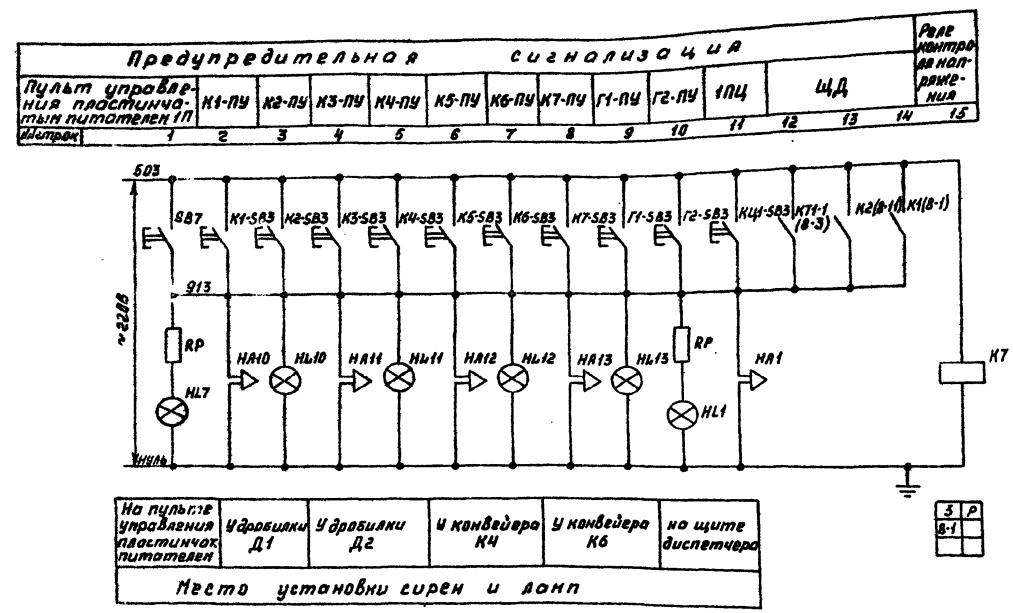 Предупредительная сигнализация
Реле
контро-
ля нап-
ряже-
ния
Пульт управле-
ния пластинча-
тым питателен 1П
К1-ПУ К2-ПУ К3-ПУ К4-ПУ К5-ПУ К6-ПУ К7-ПУ Г1-ПУ Г2-ПУ 1ПЦ ЩД
1 2 3 4 5 6 7 8 9 10 11 12 13 14 15
503
SB7 К1-SB3 К2-SB3 К3-SB3 К4-SB3 К5-SB3 К6-SB3 К7-SB3 Г1-SB3 Г2-SB3 КЦ1-SB3 КТ1-1 К2(8-11) К1(8-1)
(8-3)
913
~220В
RP HA10 HL10 HA11 HL11 HA12 HL12 HA13 HL13 RP HA1 К7
HL7 HL1
нуль
На пульте
управления
пластинчат.
питателен
У дробилки
Д1
У дробилки
Д2
У конвейера
К4
У конвейера
К6
на щите
диспетчера
Место установки сирен и ламп
З Р
8-1